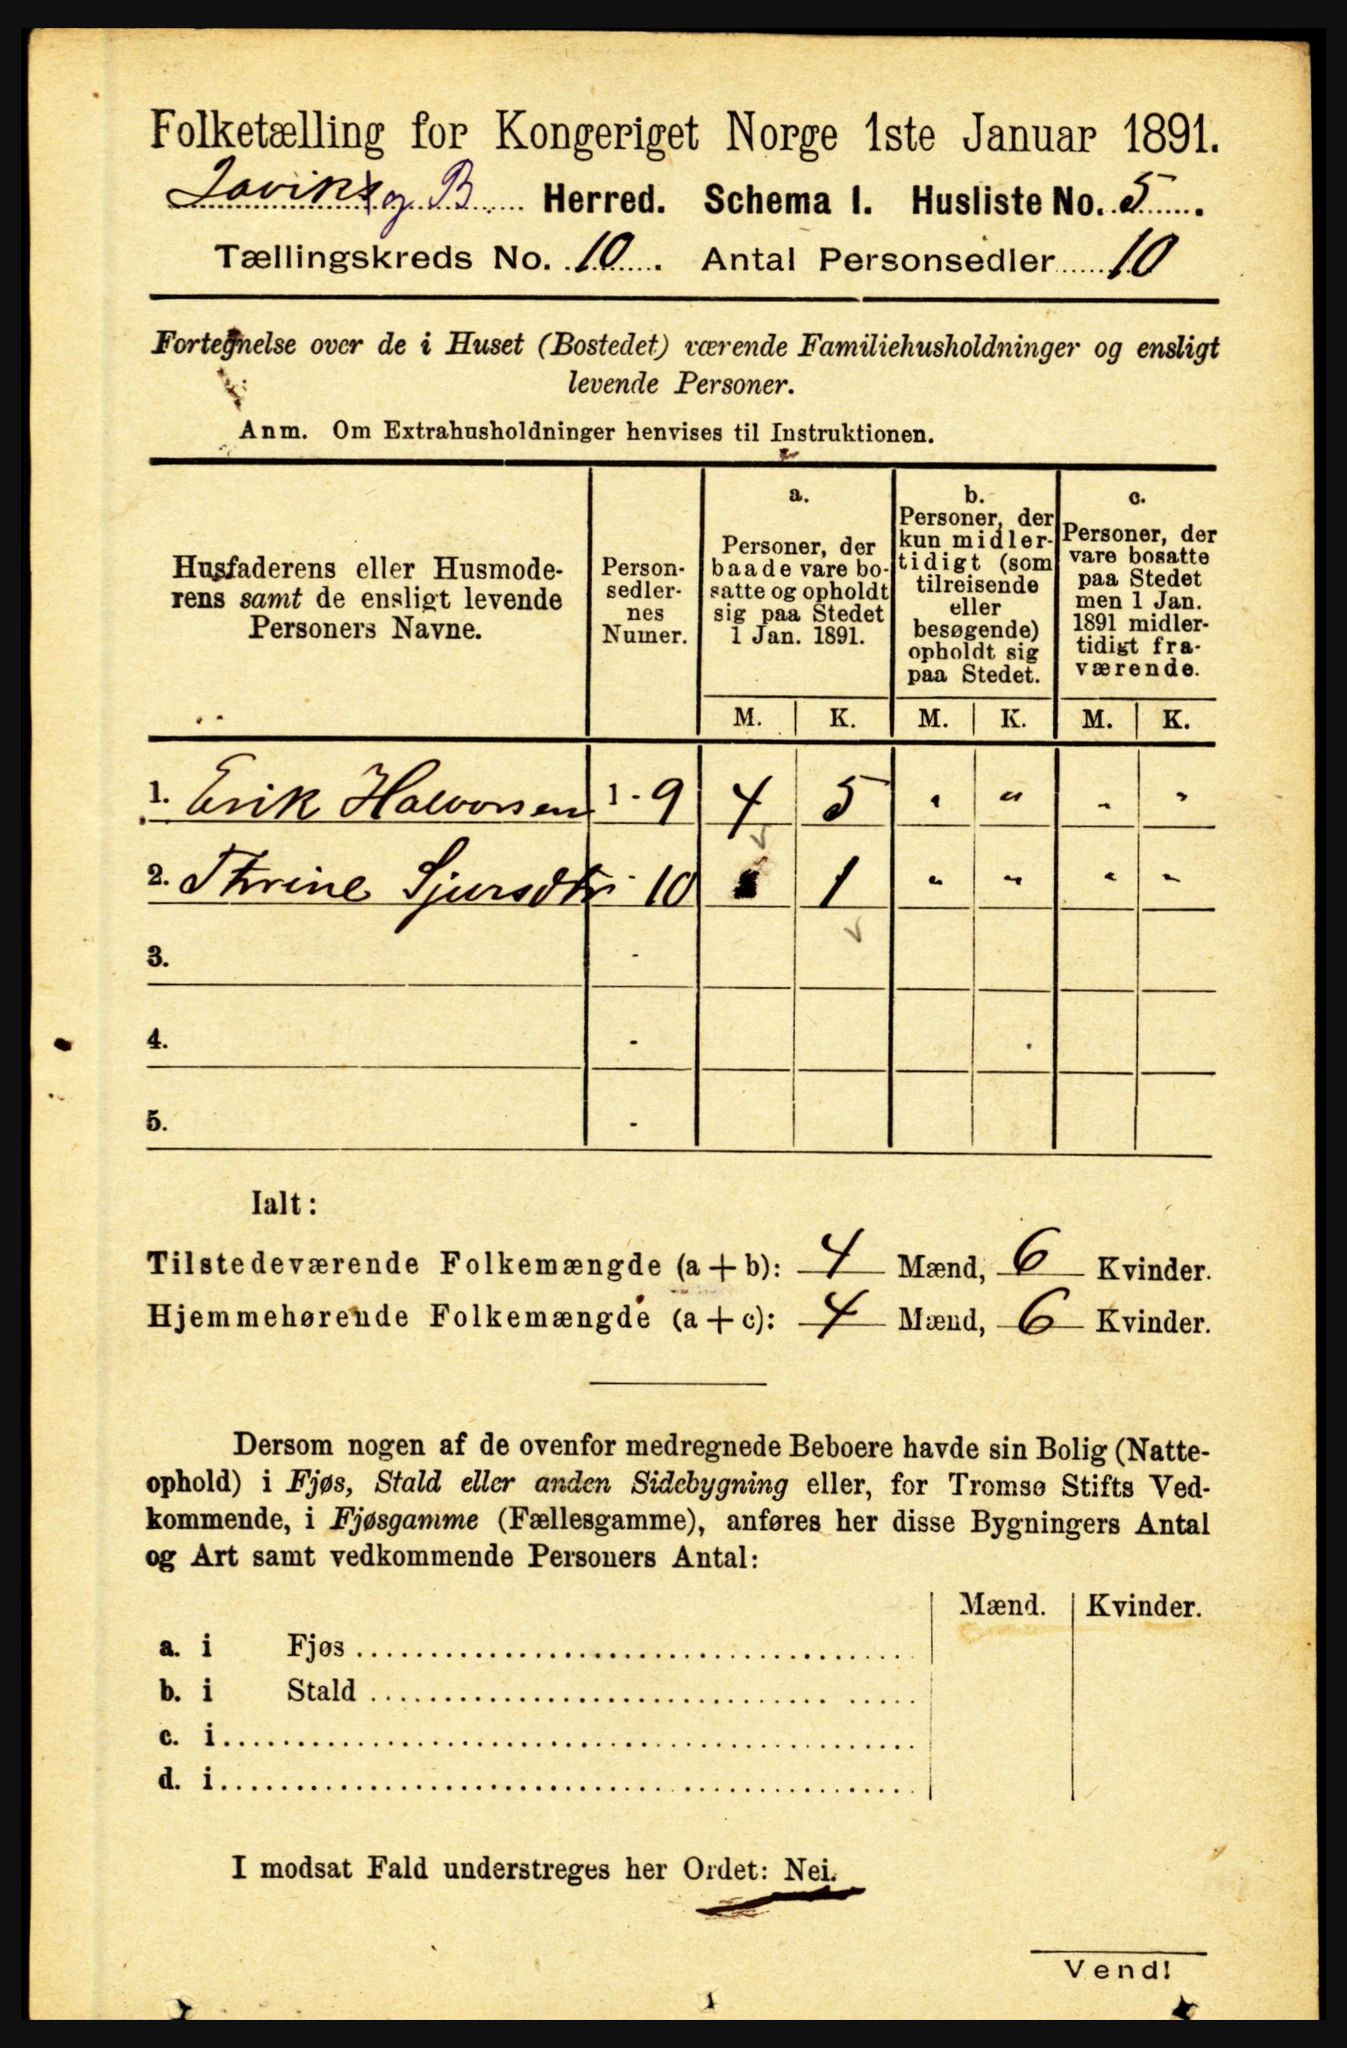 Folketælling for Kongeriget Norge 1ste Januar 1891.
Laviks og B. Herred. Schema I. Husliste No. 5.
Tællingskreds No. 10. Antal Personsedler 10
Fortegnelse over de i Huset (Bostedet) værende Familiehusholdninger og ensligt
levende Personer.
Anm. Om Extrahusholdninger henvises til Instruktionen.
Husfaderens eller Husmode-
rens samt de ensligt levende
Personers Navne.
Person-
sedler-
nes
Numer.
a.
Personer, der
baade vare bo-
satte og opholdt
sig paa Stedet
1 Jan. 1891.
b.
Personer, der
kun midler-
tidigt (som
tilreisende
eller
besøgende)
opholdt sig
paa Stedet.
c.
Personer, der
vare bosatte
paa Stedet
men 1 Jan.
1891 midler-
tidigt fra-
værende.
M. K. M. K. M. K.
1. Erik Halvorsen 1 - 9 4 5 " " " "
2. Thrine Sjursdtr - 10 1 " " " "
3. -
4. -
5. -
Ialt:
Tilstedeværende Folkemængde (a + b): 4 Mænd, 6 Kvinder.
Hjemmehørende Folkemængde (a + c): 4 Mænd, 6 Kvinder.
Dersom nogen af de ovenfor medregnede Beboere havde sin Bolig (Natte-
ophold) i Fjøs, Stald eller anden Sidebygning eller, for Tromsø Stifts Ved-
kommende, i Fjøsgamme (Fællesgamme), anføres her disse Bygningers Antal
og Art samt vedkommende Personers Antal:
Mænd. Kvinder.
a. i Fjøs
b. i Stald
c. i
d. i
I modsat Fald understreges her Ordet: Nei.
Vend!